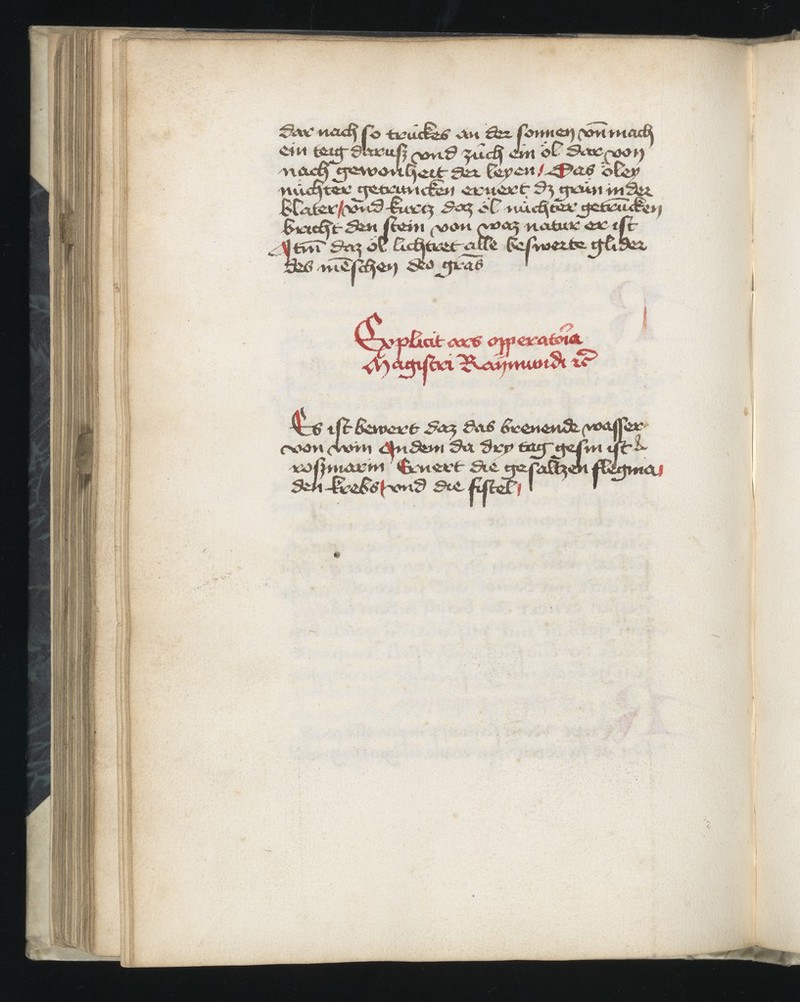 dar nach so trückes an der sonnen vn̄ mach
ein teig daruß vnd züch ein öl dar von
nach gewonheit der leyen / Das öley
nüchter getruncken eruert dz grin in der
blater / vnd kurtz daz öl nüchter getrūcken
bricht den stein von waz natur er ist
Itm̄ daz öl lichtret alle beswerte glider
des mēschen deo grās
Explicit ars opperatōia
Magistri Raÿmundi ꝛc̄
Es ist bewert daz das brenende wasser
von win An dem da dry tag gesin ist
roßmarin Eruert die gesaltzen flegma /
den krebs / vnd die fistel /